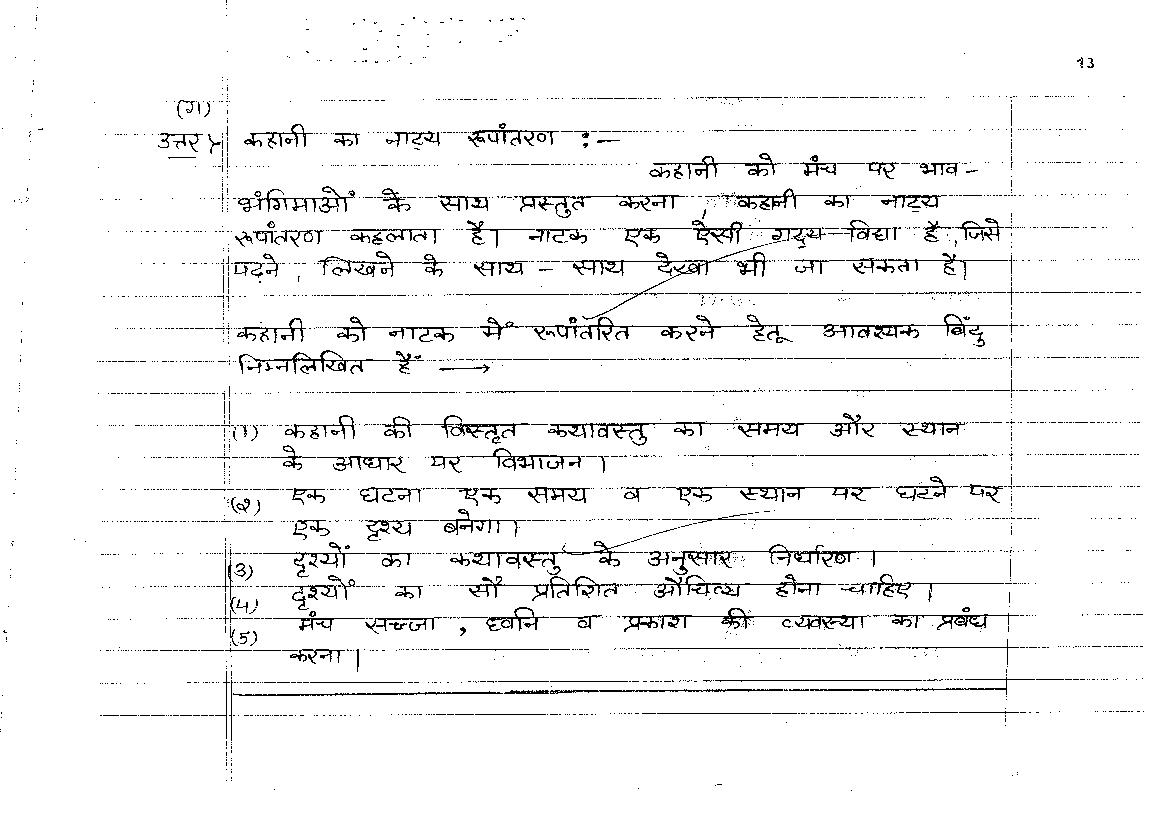 13
(ग)
उत्तर :- कहानी का नाट्य रूपांतरण :—
कहानी को मंच पर भाव-
भंगिमाओं के साथ प्रस्तुत करना, कहानी का नाट्य
रूपांतरण कहलाता है। नाटक एक ऐसी गद्य विद्या है, जिसे
पढ़ने, लिखने के साथ - साथ देखा भी जा सकता है।
कहानी को नाटक में रूपांतरित करने हेतू आवश्यक बिंदु
निम्नलिखित हैं →
(1) कहानी की विस्तृत कथावस्तु का समय और स्थान
के आधार पर विभाजन।
(2) एक घटना एक समय व एक स्थान पर घटने पर
एक दृश्य बनेगा।
(3) दृश्यों का कथावस्तु के अनुसार निर्धारण।
(4) दृश्यों का सौ प्रतिशित औचित्य होना चाहिए।
(5) मंच सज्जा, ध्वनि व प्रकाश की व्यवस्था का प्रबंध
करना।